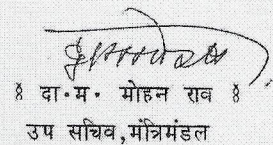 ४ दा॰म॰ मोहन राव ४
उप सचिव,मंत्रिमंडल